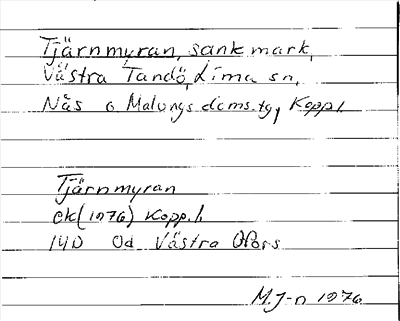 Tjärnmyran, sankmark,
Västra Tandö, Lima sn,
Nås o Malungs doms.tg, Kopp.l.
Tjärnmyran
ek (1976) Kopp.l.
14D 0d Västra Ofors
M.J-n 1976